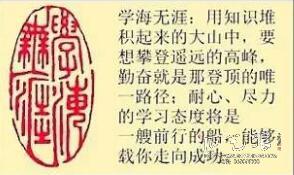 學海無涯
学海无涯：用知识堆
积起来的大山中，要
想攀登遥远的高峰，
勤奋就是那登顶的唯
一路径；耐心、尽力
的学习态度将是
一艘前行的船，能够
载你走向成功